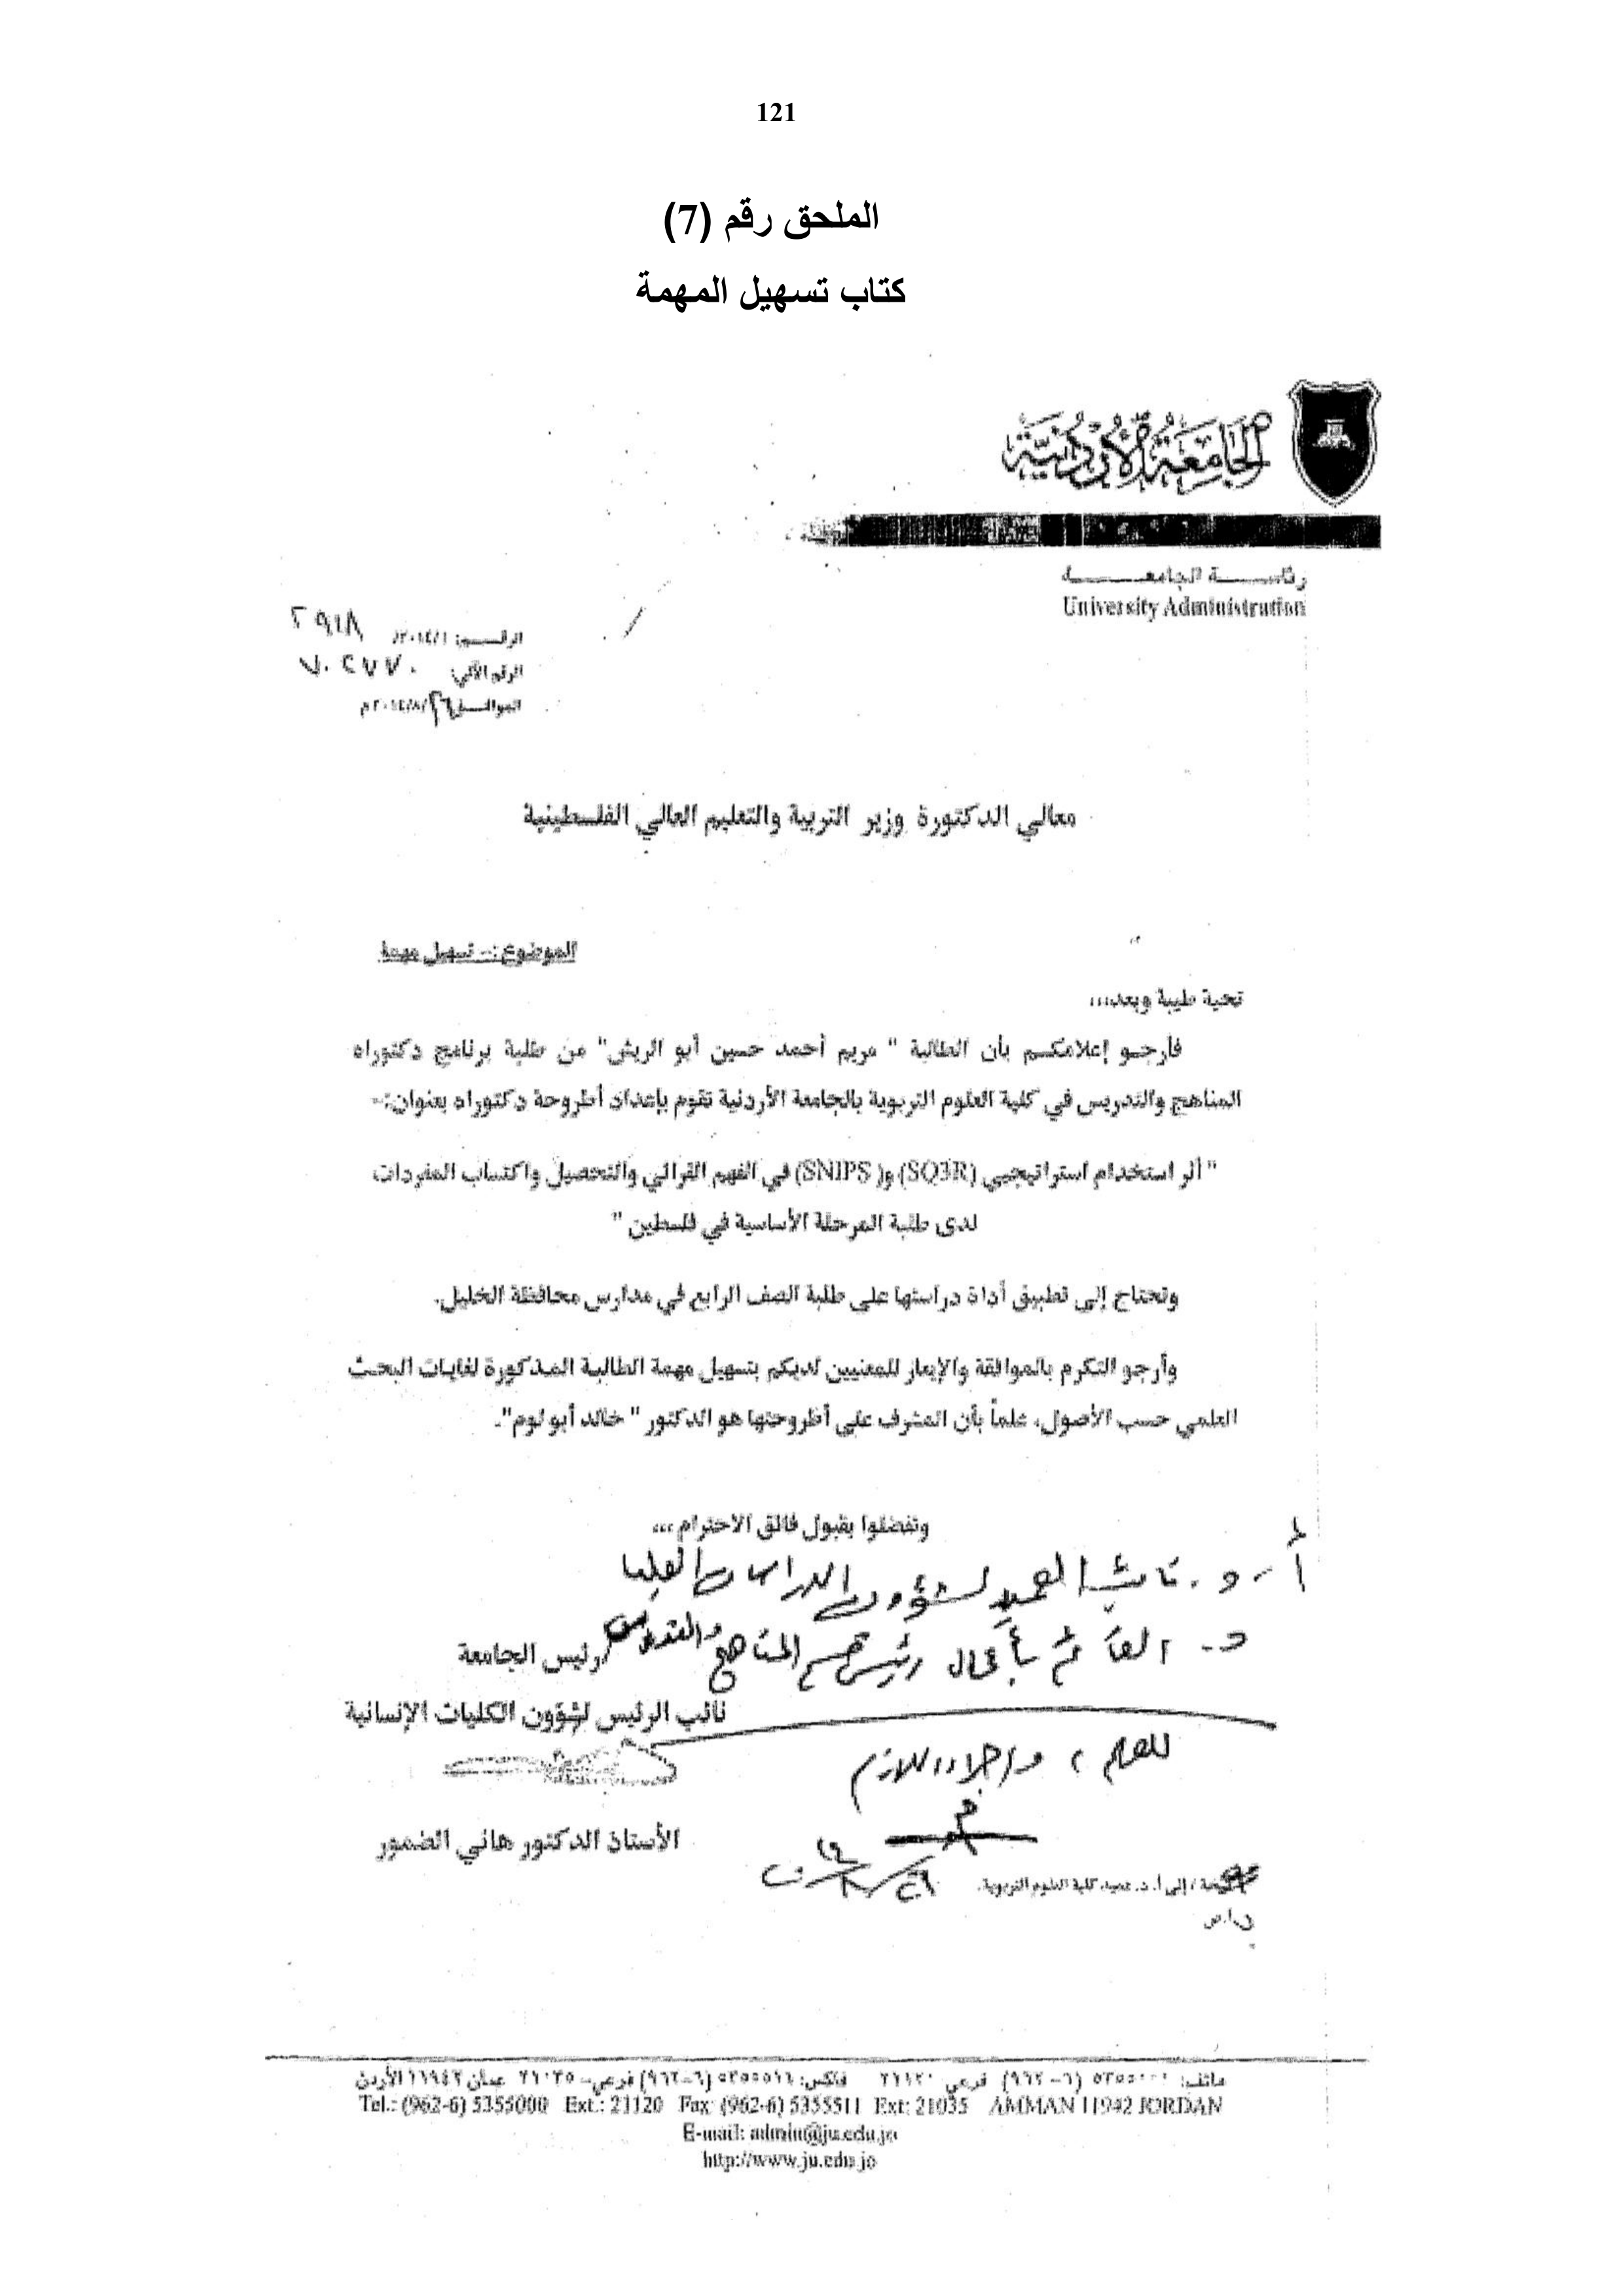 121
الملحق رقم (7)
كتاب تسهيل المهمة
الجامعة الأردنية
رئاســـة الجامعـــــة
University Administration
الرقــم: ٢٠١٤/١/ ٢٩١٨
الرقم الآلي: ٧٠٢٧٧٠
الموافـق ٢٠١٤/٨/٢٦م
معالي الدكتورة وزير التربية والتعليم العالي الفلسطينية
الموضوع:- تسهيل مهمة
تحية طيبة وبعد...
فأرجــو إعلامكــم بأن الطالبة " مريم أحمد حسين أبو الريش" من طلبة برنامج دكتوراه
المناهج والتدريس في كلية العلوم التربوية بالجامعة الأردنية تقوم بإعداد أطروحة دكتوراه بعنوان:-
" أثر استخدام استراتيجيي (SQ3R) و( SNIPS) في الفهم القرائي والتحصيل واكتساب المفردات
لدى طلبة المرحلة الأساسية في فلسطين "
وتحتاج إلى تطبيق أداة دراستها على طلبة الصف الرابع في مدارس محافظة الخليل.
وأرجو التكرم بالموافقة والإيعاز للمعنيين لديكم بتسهيل مهمة الطالبة المذكورة لغايات البحث
العلمي حسب الأصول، علماً بأن المشرف على أطروحتها هو الدكتور " خالد أبو لوم".
وتفضلوا بقبول فائق الاحترام ،،،
أ. د. نائب العميد لشؤون الدراسات العليا
د. القائم بأعمال رئيس قسم المناهج والتدريس
رئيس الجامعة
نائب الرئيس لشؤون الكليات الإنسانية
للعلم ، واجراء اللازم
الأستاذ الدكتور هاني الضمور
نسخة / إلى أ. د. عميد كلية العلوم التربوية.
هاتف: ٥٣٥٥٠٠٠ (٦-٩٦٢) فرعي ٢١١٢٠ فاكس: ٥٣٥٥٥١١ (٦-٩٦٢) فرعي- ٢١٠٣٥ عمان ١١٩٤٢ الأردن
Tel.: (962-6) 5355000 Ext.: 21120 Fax: (962-6) 5355511 Ext: 21035 AMMAN 11942 JORDAN
E-mail: admin@ju.edu.jo
http://www.ju.edu.jo